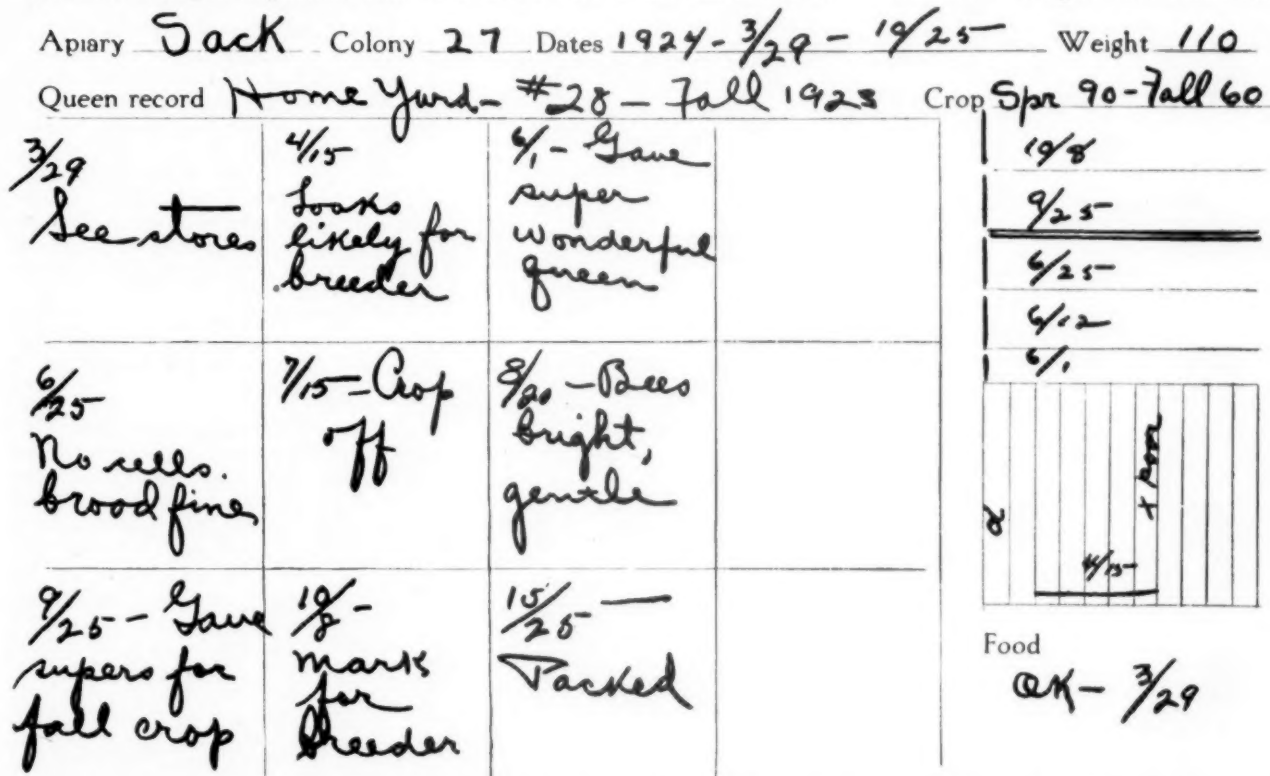 Apiary Sack Colony 27 Dates 1924 - 3/29 - 10/25 Weight 110
Queen record Home Yard - #28 - Fall 1923 Crop Spr 90 - Fall 60
3/29
See stores
4/15
Looks
likely for
breeder
6/1 - Gave
super
wonderful
queen
6/25
No cells.
brood fine
7/15 - Crop
off
8/20 - Bees
bright,
gentle
9/25 - Gave
supers for
fall crop
10/8 -
mark
for
breeder
10/25 -
Packed
10/8
9/25
6/25
6/12
6/1
x poor
4/15
Food
OK - 3/29